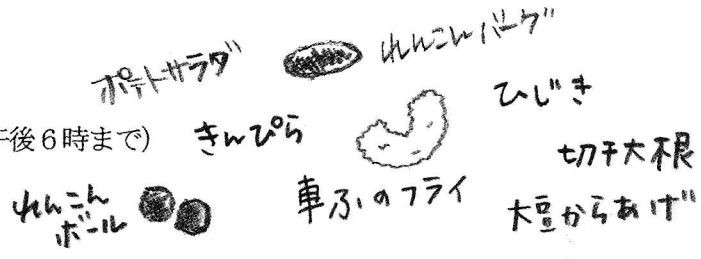 ポテトサラダ
れんこんバーグ
ひじき
午後6時まで)
きんぴら
切干大根
れんこん
ボール
車ふのフライ
大豆からあげ